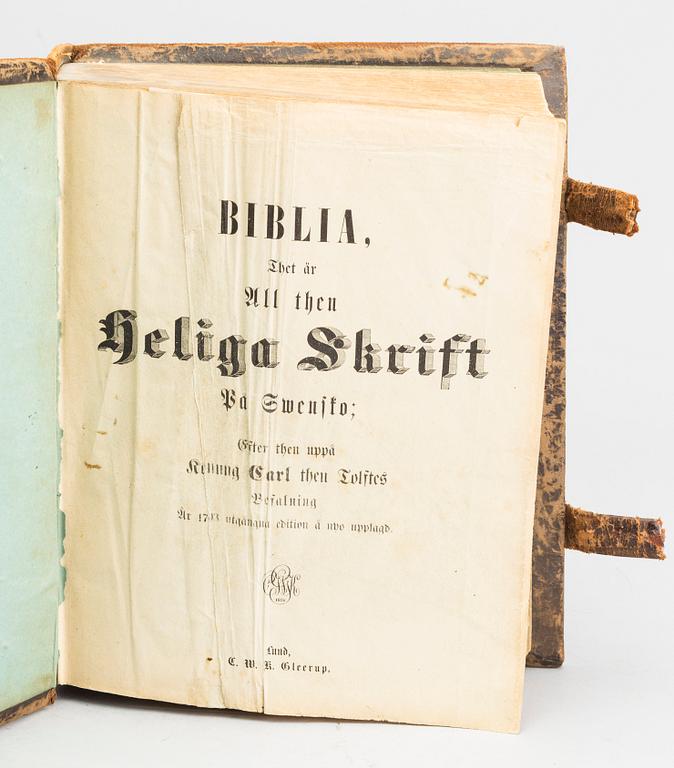 BIBLIA,
Thet är
All then
Heliga Skrift
På Swensko;
Efter then uppå
Konung Carl then Tolftes
Befalning
År 1703 utgångna edition å nyo upplagd.
Lund,
C. W. K. Gleerup.